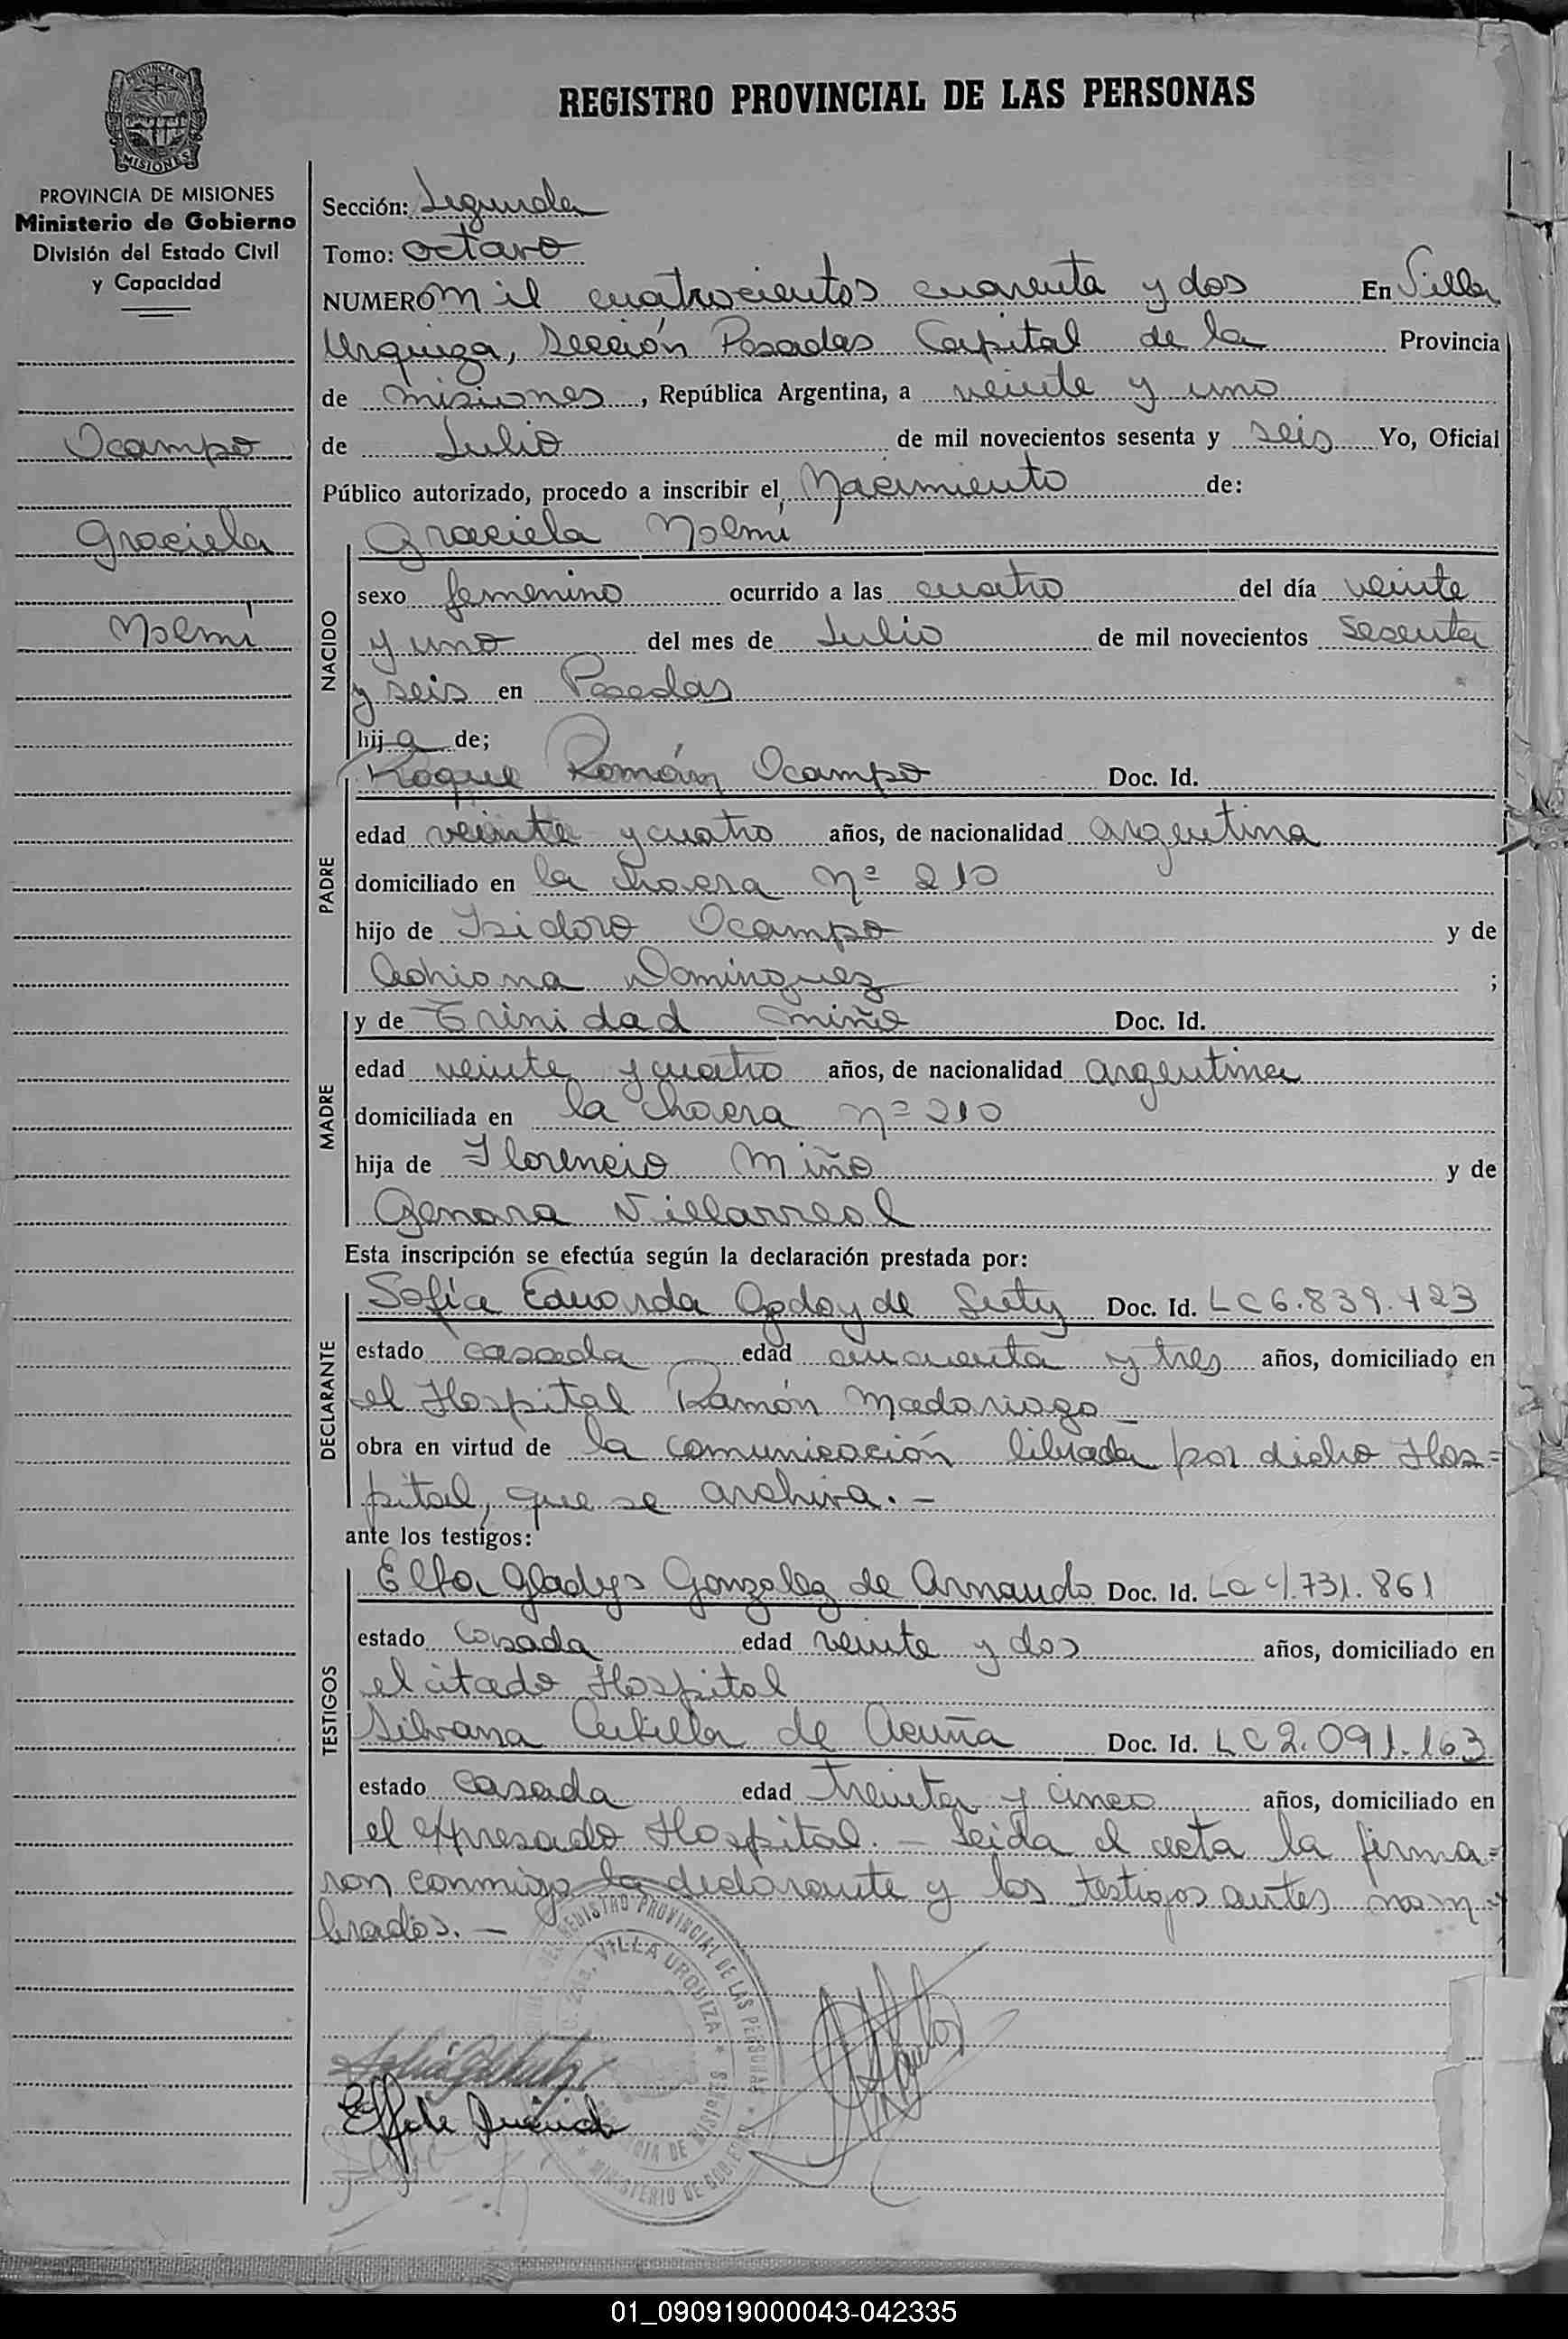 PROVINCIA DE
MISIONES
REGISTRO PROVINCIAL DE LAS PERSONAS
PROVINCIA DE MISIONES
Ministerio de Gobierno
División del Estado Civil
y Capacidad
Ocampo
Graciela
Noemí
Sección: Segunda
Tomo: octavo
NUMERO mil cuatrocientos cuarenta y dos En Villa
Urquiza, Sección Posadas Capital de la Provincia
de misiones, República Argentina, a veinte y uno
de Julio de mil novecientos sesenta y seis Yo, Oficial
Público autorizado, procedo a inscribir el Nacimiento de:
Graciela Noemí
NACIDO
sexo femenino ocurrido a las cuatro del día veinte
y uno del mes de Julio de mil novecientos sesenta
y seis en Posadas
hija de;
Roque Román Ocampo Doc. Id.
PADRE
edad veinte y cuatro años, de nacionalidad argentina
domiciliado en la chacra nº 210
hijo de Isidoro Ocampo y de
Adriana Dominguez ;
MADRE
y de Trinidad miño Doc. Id.
edad veinte y cuatro años, de nacionalidad argentina
domiciliada en la chacra nº 210
hija de Florencio Miño y de
Genara Villarreal
Esta inscripción se efectúa según la declaración prestada por:
DECLARANTE
Sofía Eduarda Godoy de Doc. Id. LC 6.839.423
estado casada edad cincuenta y tres años, domiciliado en
el Hospital Ramón Madariaga
obra en virtud de la comunicación librada por dicho Hos=
pital, que se archiva.-
ante los testigos:
TESTIGOS
Elba Gladys Gonzalez de Armando Doc. Id. LC 4.731.861
estado casada edad veinte y dos años, domiciliado en
el citado Hospital
Silvana de Acuña Doc. Id. LC 2.091.163
estado casada edad treinta y cinco años, domiciliado en
el expresado Hospital.- Leida el acta la firma=
ron conmigo la declarante y los testigos antes nom=
brados.-
REGISTRO PROVINCIAL DE LAS PERSONAS
VILLA URQUIZA
PROVINCIA DE MISIONES
MINISTERIO DE GOBIERNO
01_090919000043-042335